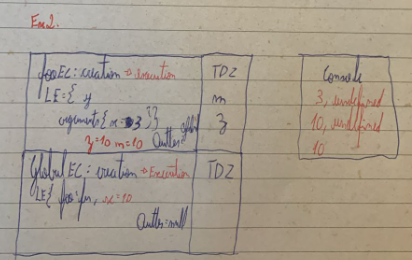 Exe 2.
foo EC: creation → execution
TDZ
LE={ y
m
arguments{ x: 3 }}
z
z=10 m=10 Outter: global
Global EC: creation → Execution
TDZ
LE{ foo: fn, x=10
Outter=null
Console
3, undefined
10, undefined
10